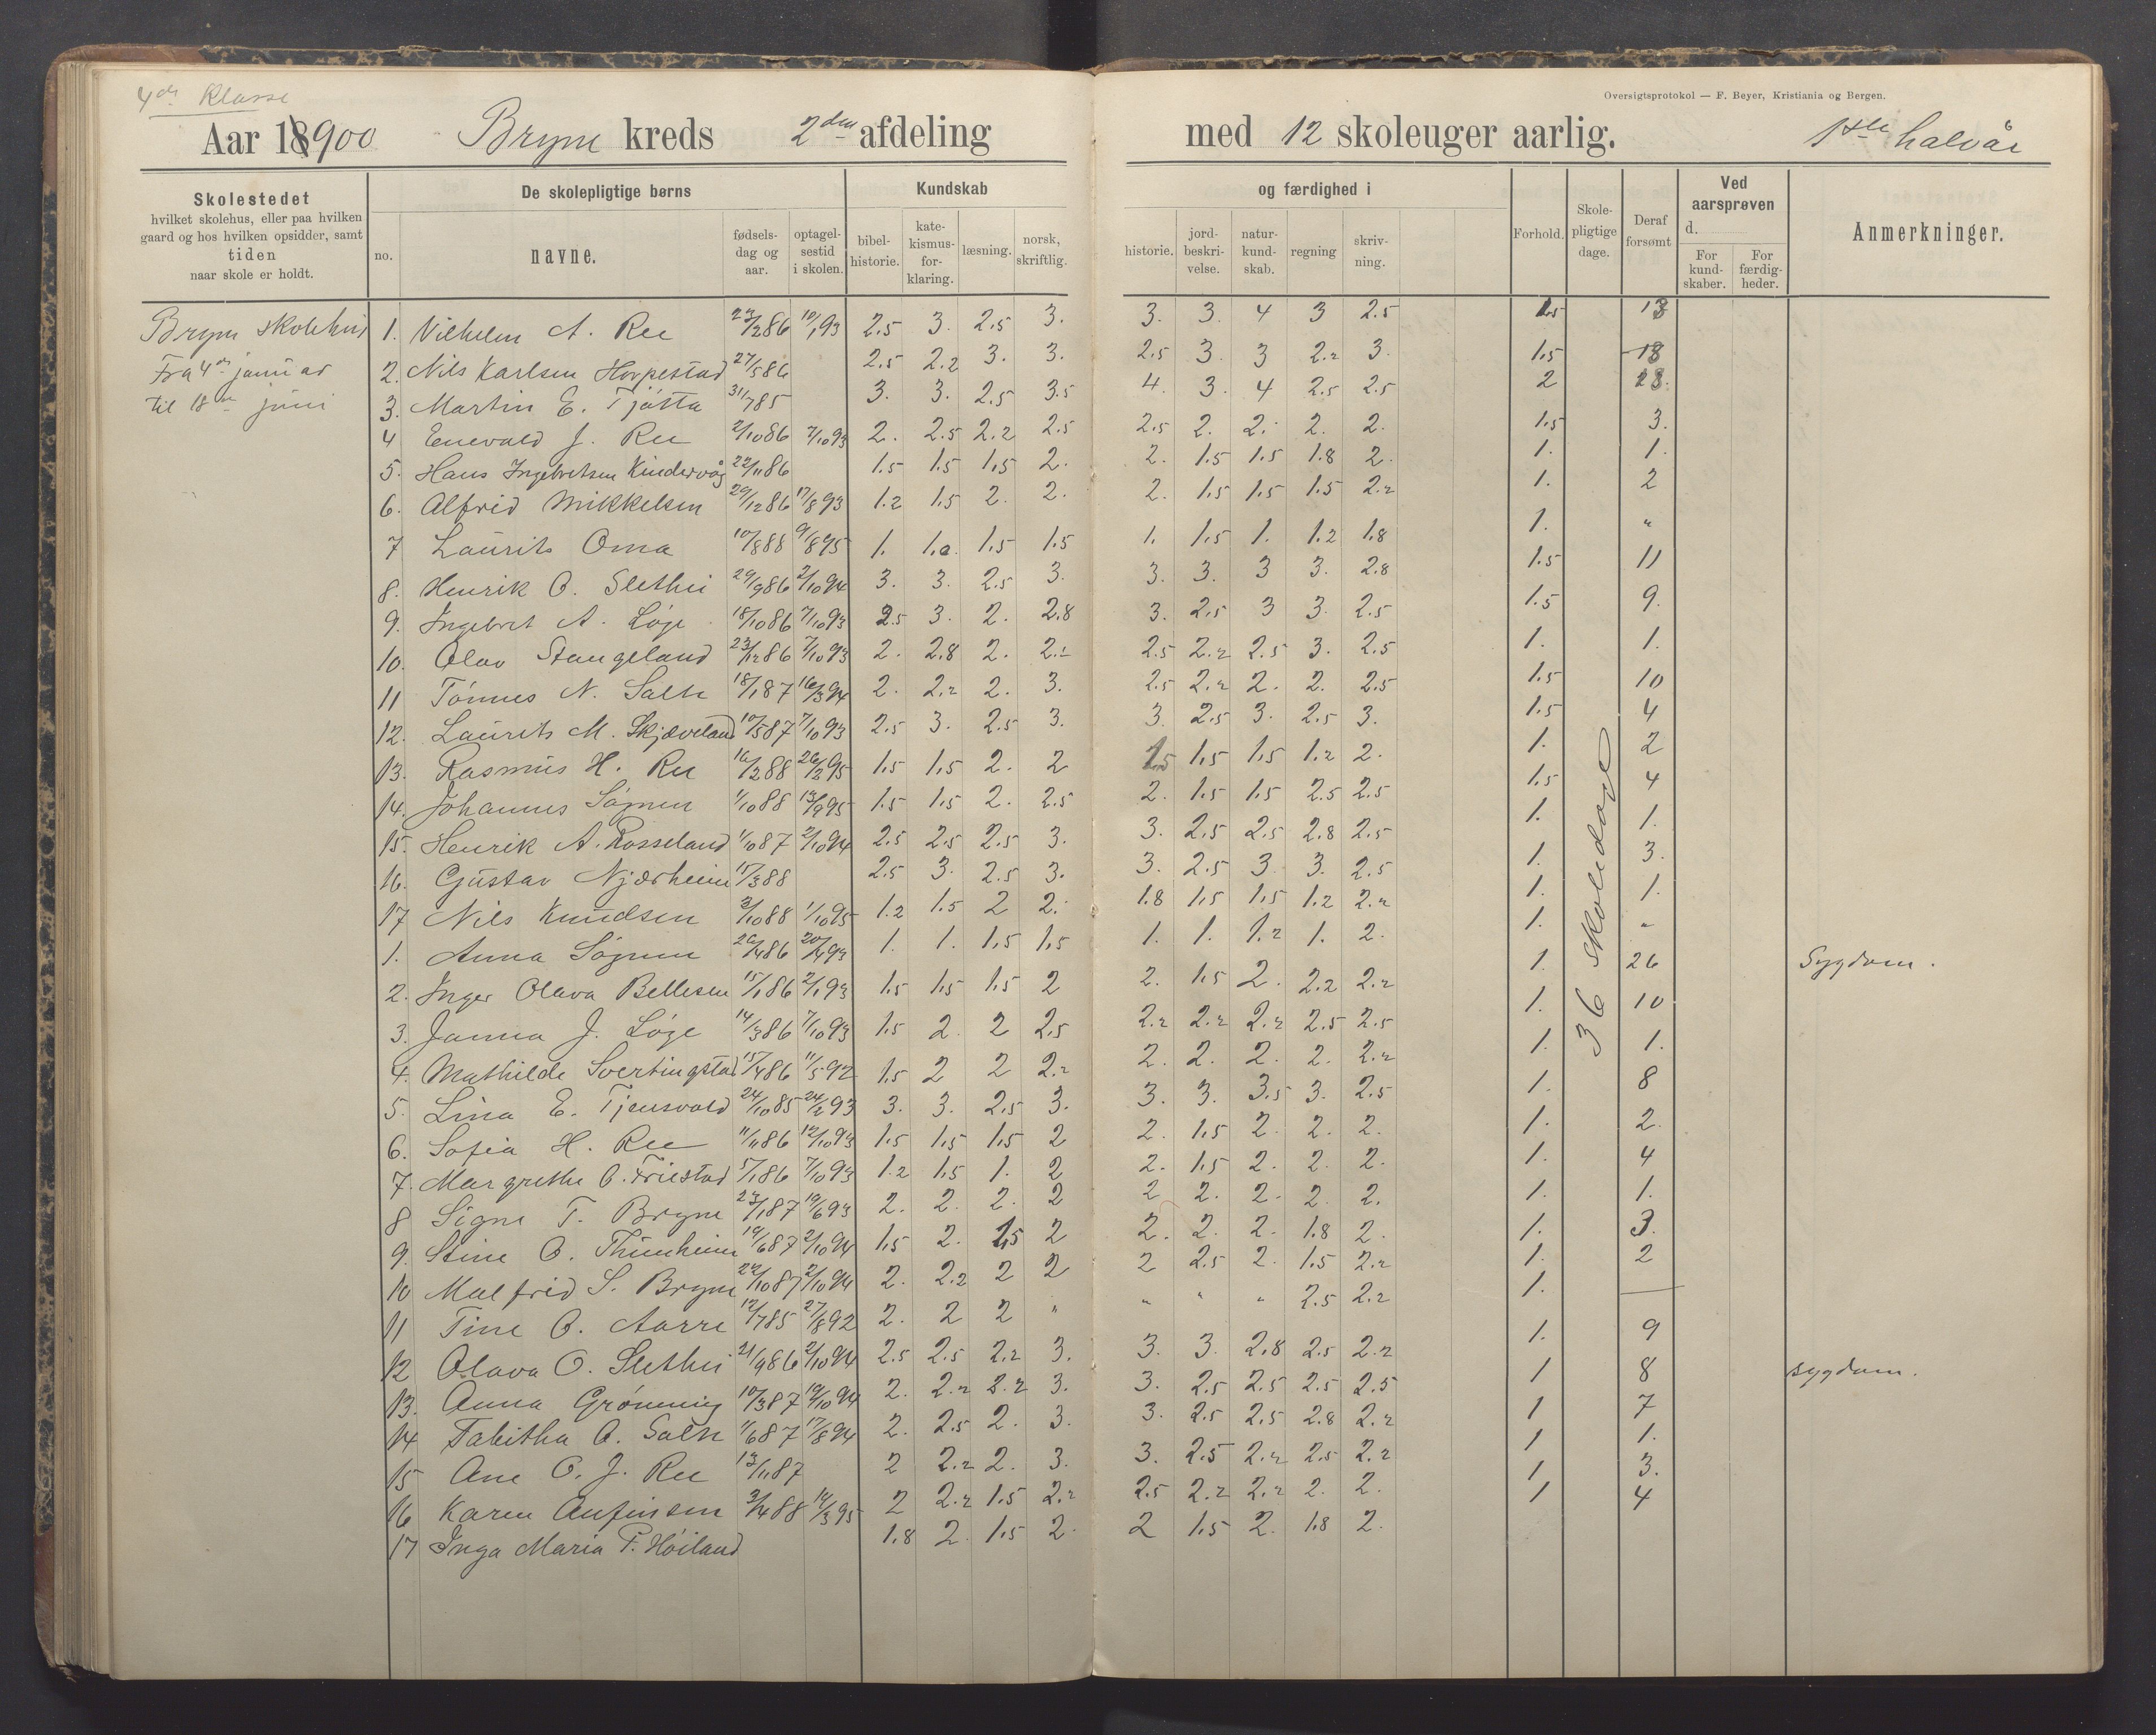 4de Klasse
Oversigtsprotokol — F. Beyer, Kristiania og Bergen.
Aar 18900 Bryne kreds 2den afdeling med 12 skoleuger aarlig. 1ste halvår
Skolestedet
hvilket skolehus, eller paa hvilken
gaard og hos hvilken opsidder, samt
tiden
naar skole er holdt.
De skolepligtige børns
no. navne. fødsels-dag og aar. optagel-sestid i skolen.
Kundskab og færdighed i
bibel-historie. kate-kismus-for-klaring. læsning. norsk, skriftlig. historie. jord-beskri-velse. natur-kund-skab. regning skriv-ning.
Forhold. Skole-pligtige dage. Deraf forsømt
Ved aarsprøven d.
For kund-skaber. For færdig-heder.
Anmerkninger.
Bryne skolehus
Fra 4de januar
til 18de juni
36 skoledage
1. Vilhelm A. Ree 23/2 86 10/1 93 2.5 3. 2.5 3. 3. 3. 4 3 2.5 1.5 13
2. Nils Karlsen Hovpestad 27/5 86 2.5 2.2 3. 3. 2.5 3. 3 2.2 3. 1.5 18
3. Martin E. Tjåtta 31/7 85 3. 3. 2.5 3.5 4. 3. 4 2.5 2.5 2 28.
4 Enevald J. Ree 2/10 86 7/10 93 2. 2.5 2.2 2.5 2.5 2. 2. 2. 2. 1.5 3.
5. Hans Ingebretsen Kindervåg 22/11 86 1.5 1.5 1.5 2. 2. 1.5 1.5 1.8 2. 1. 1.
6. Alfrid Mikkelsen 29/12 86 17/8 93 1.2 1.5 2. 2. 2. 1.5 1.5 1.5 2.2 1. 2
7 Laurits Oma 10/8 88 9/8 95 1. 1.2. 1.5 1.5 1. 1.5 1. 1.2 1.8 1. "
8. Henrik O. Slethei 29/9 86 2/10 94 3. 3. 2.5 3. 3. 3. 3 3. 2.8 1.5 11
9. Ingebret A. Løge 18/10 86 7/10 93 2.5 3. 2. 2.8 3. 2.5 3 3. 2.5 1.5 9.
10. Olav Stangeland 23/12 86 7/10 93 2. 2.8 2. 2.2 2.5 2.2 2.5 3. 2.5 1. 1.
11 Tønnes N. Salte 18/1 87 16/3 94 2. 2.2 2. 3. 2.5 2.2 2. 2. 2.5 1.5 10
12. Laurits M. Skjæveland 10/5 87 7/10 93 2.5 3. 2.5 3. 3. 2.5 3. 2.5 3. 1.5 4
13. Rasmus H. Ree 16/2 88 26/2 95 1.5 1.5 2. 2 1.5 1.5 1.5 1.2 2. 1. 2
14. Johannes Søgnen 1/10 88 13/9 95 1.5 1.5 2. 2.5 2. 1.5 1.5 2.5 2.5 1.5 4
15. Henrik A. Rosseland 1/10 87 2/10 94 2.5 2.5 2.5 3. 3. 2.5 2.5 2.8 2.5 1. 1.
16. Gustav Njærheim 15/3 88 2.5 3. 2.5 3. 3. 2.5 3 3. 2.5 1. 3.
17 Nils Knudsen 3/10 88 1/10 95 1.2 1.5 2 2. 1.8 1.5 1.5 1.2 2.2 1. 1.
1. Anna Søgnen 26/4 86 20/4 93 1. 1. 1.5 1.5 1. 1. 1.2 1. 2. 1. "
2. Inger Olava Bellesen 15/1 86 2/1 93 1.5 1.5 1.5 2 2. 1.5 2. 2.2 2.2 1. 26 Sygdom.
3. Janna J. Løge 14/3 86 7/10 93 1.5 2. 2 2.5 2.2 2.2 2.2 2.5 2.5 1. 10
4. Mathilde Svertingstad 15/4 86 11/5 92 1.5 2 2 2.2 2. 2. 2. 2. 2.2 1. 1.
5. Lina E. Tjensvold 24/10 85 24/2 93 3. 3. 2.5 3. 3. 3. 3.5 3. 2.5 1. 8
6. Sofia H. Ree 11/11 86 12/10 93 1.5 1.5 1.5 2 2. 1.5 2. 2. 2. 1. 2.
7. Margrethe O. Friestad 5/1 86 7/10 93 1.2 1.5 1. 2 2. 1.5 2. 2. 2. 1. 4
8 Signe T. Bryne 23/1 87 19/6 93 2. 2. 2. 2 2 2. 2. 2. 2. 1. 1.
9. Stine O. Thunheim 19/6 87 2/10 94 1.5 2. 1.5 2 2. 2. 2. 1.8 2. 1. 3.
10 Malfrid S. Bryne 22/10 87 2/10 94 2. 2.2 2 2 2 2.5 2. 1.5 2.2 1. 2
11 Tine O. Aarre 12/7 85 27/8 92 2. 2 2 " " " " 2.5 2.2 1. —
12 Olava O. Slethei 21/9 86 2/10 94 2.5 2.5 2.2 3. 3. 3. 2.8 2.5 2.2 1. 9
13. Anna Grønning 10/3 87 19/10 94 2. 2.2 2.2 3. 3. 2.5 2.5 2.5 2.5 1 8 sygdom.
14 Tabitha O. Salte 1/6 87 17/8 94 2. 2.5 2. 3. 3. 2.5 2.5 2.8 2.2 1 7
15 Ane O. J. Ree 13/11 87 2 2.2 2. 3. 3. 2.5 2.2 2.5 2.2 1 1.
16 Karen Anfinsen 3/4 88 14/3 95 2 2.2 1.5 2.2 2.5 2.2 2.2 2. 2. 1 3.
17 Inga Maria P. Høiland 1.8 2. 1.5 2. 2 1.5 2. 1.8 2. 1 4